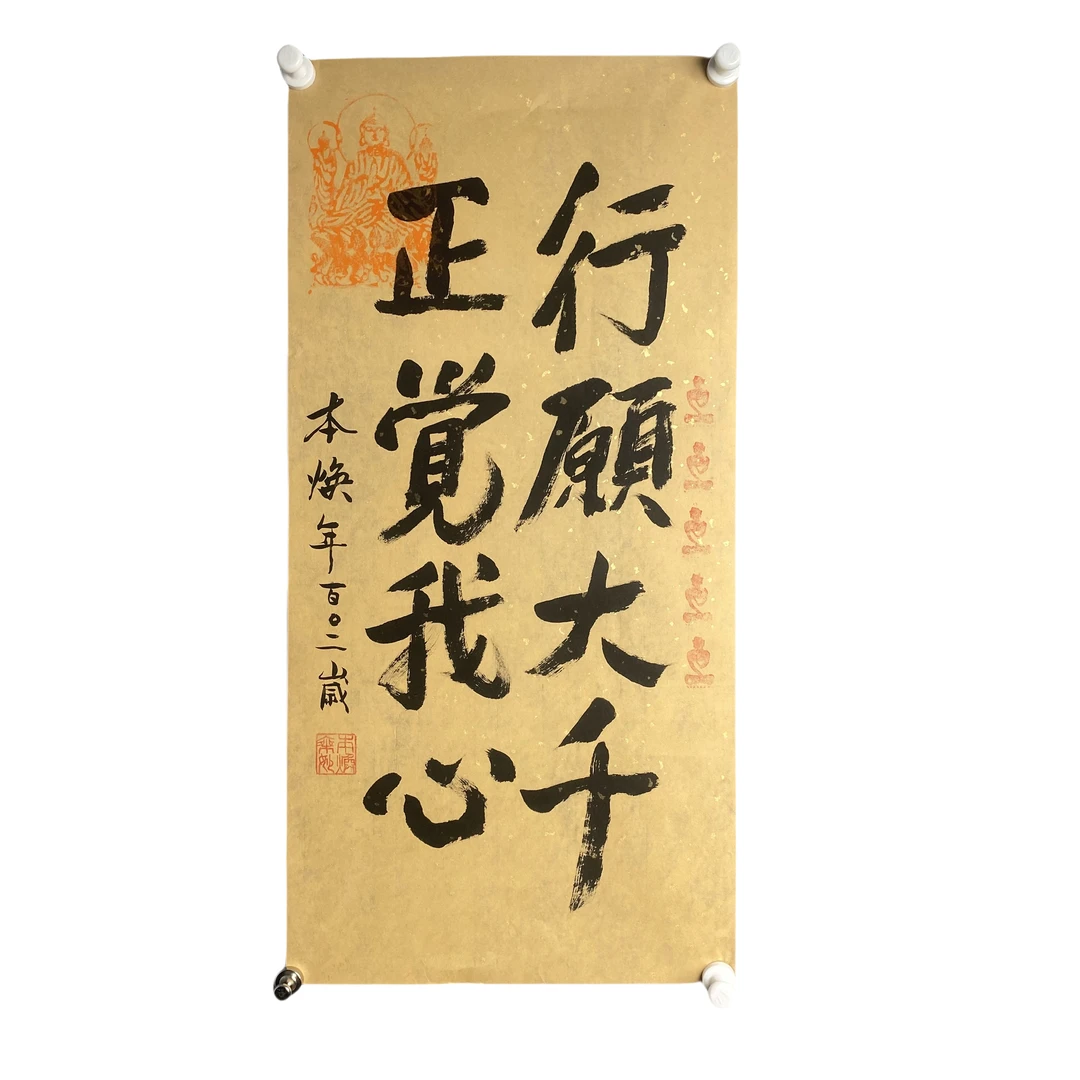 行願大千
正覺我心
本煥年百〇二歲